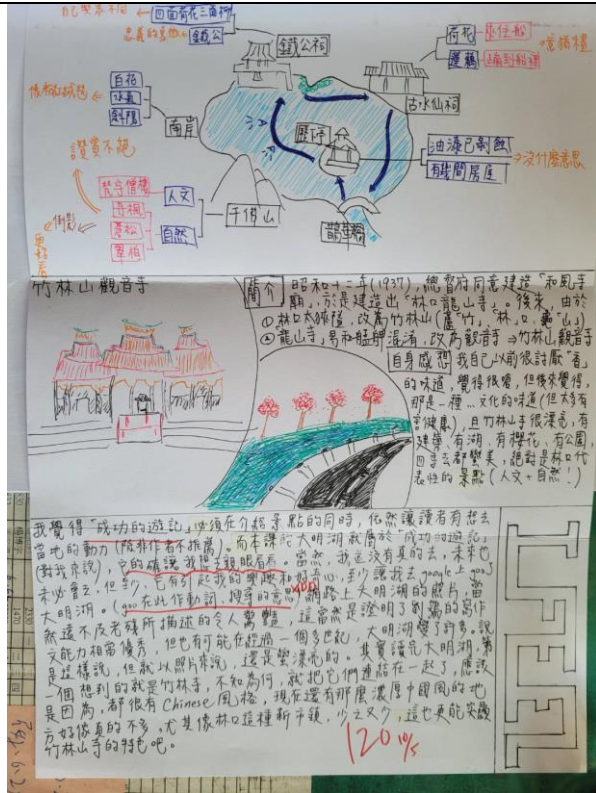 自己與舟不同
四面荷花三角柳
忠義的象徵
鐵公
鐵公祠
荷花
蓮蓬
來往船
古水仙祠
白花
水氣
斜陽
南岸
歷亭
油漆已剝蝕
有幾間房屋
沒什麼意思
讚賞不絕
梵宇僧樓
人文
寺楓
蒼松
翠柏
自然
倒影
千佛山
鵲華橋
竹林山觀音寺
簡介
昭和十二年(1937),總督府同意建造「和風寺
廟」,於是建造出「林口龍山寺」。後來,由於
①林口太狹隘,改為竹林山(蘆"竹"、"林"口、龜"山")
②龍山寺,易和艋舺混淆,改為觀音寺⇒竹林山觀音寺
自身感想
我自己以前很討厭"香"
的味道,覺得很嗆,但後來覺得,
那是一種…文化的味道(但太多有
害健康),且竹林山寺很漂亮,有
建築、有湖、有櫻花、有公園,
四季去都蠻美,絕對是林口代
表性的景點(人文+自然!)
我覺得"成功的遊記"必須在介紹景點的同時,依然讓讀者有想去
當地的動力(除非作者不推薦)。而本課記大明湖就屬於"成功的遊記"。
(對我來說),它的確讓我想親眼看看。當然,我還沒有真的去,未來也
未必會去,但至少,它有引起我的興趣和好奇心,至少讓我去google上goo
大明湖。(goo在此作動詞,搜尋的意思)網路上大明湖的照片,當
XDD
然還不及老殘所描述的令人驚豔,這當然是證明了劉鶚的寫作
文能力相當優秀,但也有可能在經過一個多世紀,大明湖變了許多。說
是這樣說,但就以照片來說,還是蠻漂亮的。其實讀完大明湖,第
一個想到的就是竹林寺,不知為何,就把它們連結在一起了,應該
是因為,都很有Chinese風格,現在還有那麼濃厚中國風的地
方好像真的不多。尤其像林口這種新市鎮,少之又少,這也更能突顯
竹林山寺的特色吧。
120 10/5
I FEEL